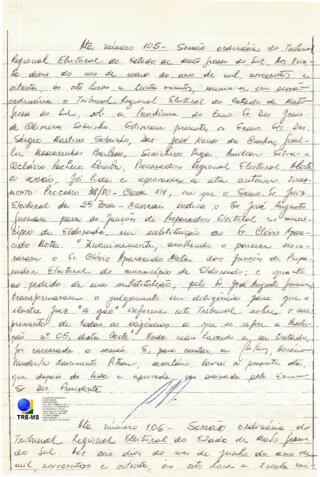 Ata número 105 - Sessão ordinária do Tribunal
Regional Eleitoral do Estado de Mato Grosso do Sul. Aos
dias do mes de maio do ano de mil, novecentos e
oitenta, às oito horas e trinta minutos, reuniu-se em sessão
ordinária o Tribunal Regional Eleitoral do Estado de Mato
Grosso do Sul, sob a Presidência do Exmo. Sr. Des. Jesus
de Oliveira Sobrinho. Estiveram presentes os Exmos. Srs. Des.
Sérgio Martins Sobrinho, José Nunes da Cunha,
e
Pacheco Procurador Regional Eleitoral. Aberta
a sessão, foi lida e aprovada a ata anterior. Julga-
mento: Processo 28/80 - Classe em que o Exmo. Sr. Juiz
Eleitoral da Zona - indica o Sr. José Augusto
para as funções de Preparador Eleitoral no muni-
cípio de Eldorado, em substituição ao Sr. Clóvis Apare-
cido Mota. "Unanimemente, acolhendo o parecer, exone-
raram o Sr. Clóvis Aparecido Mota das funções de Prepa-
rador Eleitoral do município de Eldorado; e quanto
ao pedido de sua substituição, pelo Sr. José Augusto
transformaram o julgamento em diligência para que o
ilustre Juiz "a quo" informe este Tribunal sobre o cum-
primento de todas as exigências a que se refere a Resolu-
ção nº 05, desta Corte". Nada mais havendo a ser tratado,
foi encerrada a sessão. E, para constar, eu
Nascimento secretário, lavrei a presente ata,
que depois de lida e aprovada, vai assinada pelo Exmo.
Sr. Des. Presidente.
TRE-MS
Ata número 106 - Sessão ordinária do
Tribunal Regional Eleitoral do Estado de Mato Grosso
do Sul. Aos dias do mes de junho do ano de
mil, novecentos e oitenta, às oito horas e